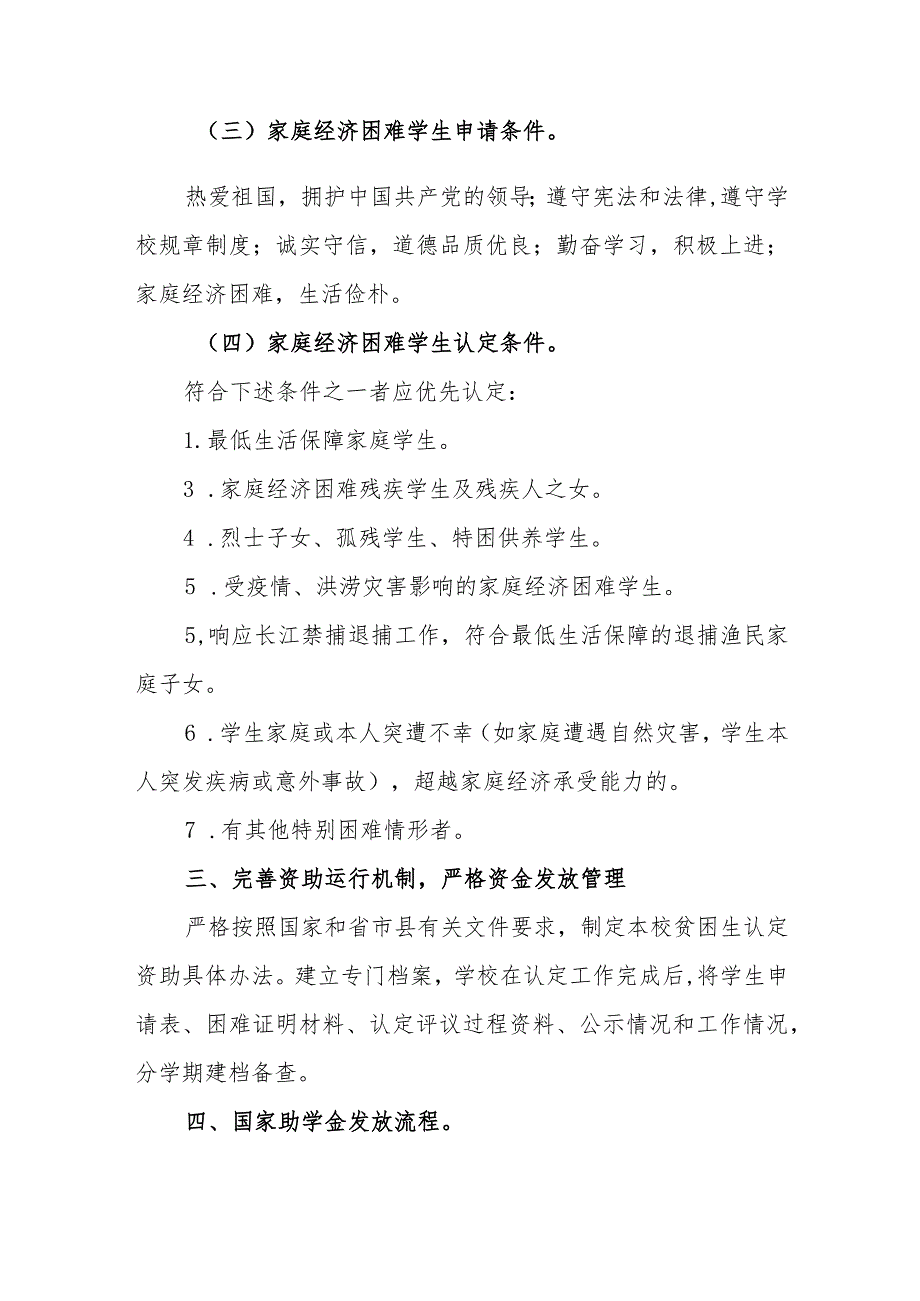 （三）家庭经济困难学生申请条件。
热爱祖国，拥护中国共产党的领导；遵守宪法和法律,遵守学
校规章制度；诚实守信，道德品质优良；勤奋学习，积极上进；
家庭经济困难，生活俭朴。
（四）家庭经济困难学生认定条件。
符合下述条件之一者应优先认定：
1.最低生活保障家庭学生。
3 .家庭经济困难残疾学生及残疾人之女。
4 .烈士子女、孤残学生、特困供养学生。
5 .受疫情、洪涝灾害影响的家庭经济困难学生。
5,响应长江禁捕退捕工作，符合最低生活保障的退捕渔民家
庭子女。
6 .学生家庭或本人突遭不幸（如家庭遭遇自然灾害，学生本
人突发疾病或意外事故），超越家庭经济承受能力的。
7 .有其他特别困难情形者。
三、完善资助运行机制，严格资金发放管理
严格按照国家和省市县有关文件要求，制定本校贫困生认定
资助具体办法。建立专门档案，学校在认定工作完成后,将学生申
请表、困难证明材料、认定评议过程资料、公示情况和工作情况，
分学期建档备查。
四、国家助学金发放流程。